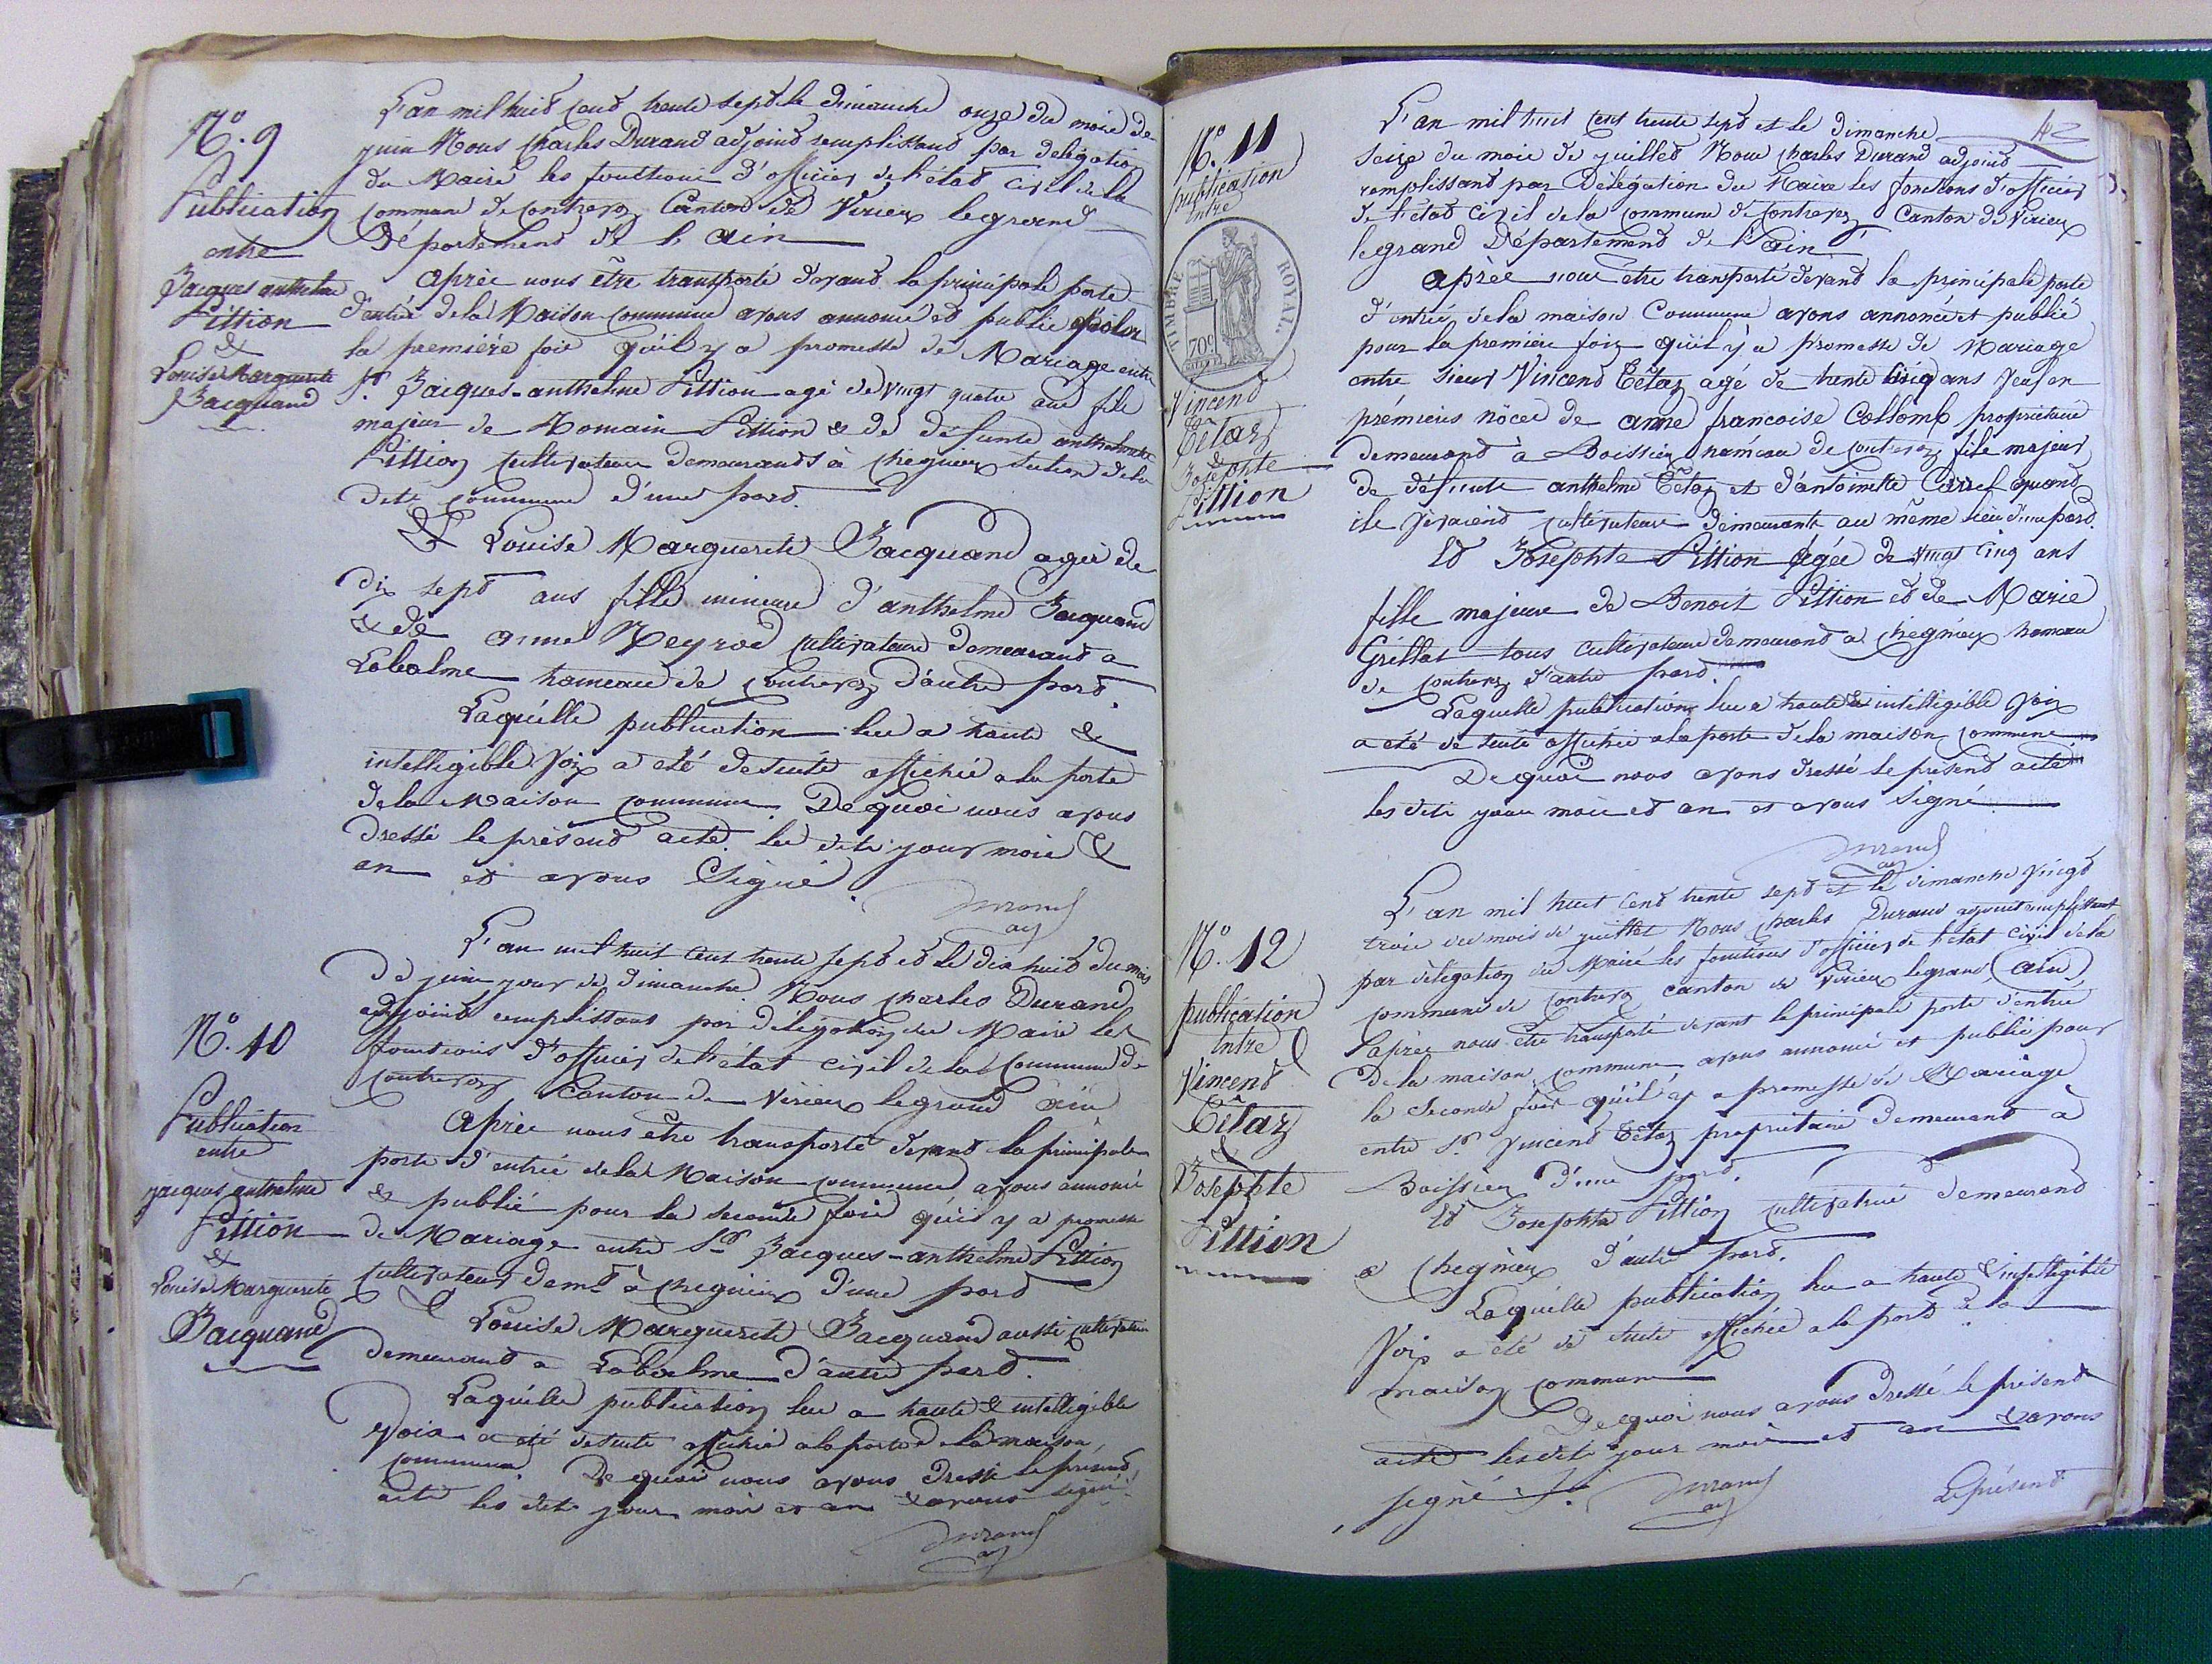 N.o 9
Publication
entre
Jacques anthelme
Pittion
&
Louise Marguerite
Jacquand
L'an mil huit cent trente sept le dimanche onze du mois de
juin Nous Charles Durand adjoint remplissant par délégation
du Maire les fonctions d'officier de l'état civil de la
commune de contrevoz Canton de Virieux legrand
Département de l'ain
après nous être transporté devant la principale porte
d'entrée de la Maison commune avons annoncé et publié pour
la première fois qu'il y a promesse de Mariage entre
Sr. Jacques-anthelme Pittion agé de vingt quatre ans fils
majeur de Romain Pittion & de défunte anthelmette
Pittion cultivateurs demeurants à chegnieux section de la
dite commune d'une part.
& Louise Marguerite Jacquand agée de
dix sept ans fille mineure d'anthelme Jacquand
& de anne Neyrod cultivateurs demeurant a
Labalme hameau de contrevoz d'autre part.
Laquelle publication lue a haute &
intelligible Voix a été de suite affichée a la porte
de la Maison commune. De quoi nous avons
dressé le présent acte. les dits jour mois &
an et avons Signé.
Durand
adj
N.o 10
Publication
entre
jacques anthelme
Pittion
&
Louise Marguerite
Jacquand
L'an mil huit cent trente sept et le dix huit du mois
de juin jour de dimanche Nous charles Durand
adjoint remplissant par délégation du Maire les
fonctions d'officier de l'état civil de la commune de
contrevoz Canton de Virieux legrand ain
après nous être transporté devant la principale
porte d'entrée de la Maison commune avons annoncé
& publié pour la seconde fois qu'il y a promesse
de Mariage entre Sr Jacques-anthelme Pittion
cultivateur demt à chegnieux d'une part
& Louise Marguerite Jacquand aussi cultivatrice
demeurant a Labalme d'autre part.
Laquelle publication lue a haute & intelligible
Voix a été de suite affichée a la porte de la maison
commune. De quoi nous avons dressé le présent
acte les dits jour mois et an & avons signé.
Durand
adj
42
N.o 11
publication
Entre
TIMBRE ROYAL
70c
Vincend
Tétaz
&
Josephte
Pittion
L'an mil huit cent trente sept et le dimanche
seize du mois de juillet Nous charles Durand adjoint
remplissant par Délégation du Maire les fonctions d'officier
de l'état civil de la commune de contrevoz Canton de Virieux
legrand Département de l'ain
après nous être transporté devant la principale porte
d'entrée de la maison Commune avons annoncé et publié
pour la première fois qu'il y a promesse de Mariage
entre sieur Vincend Tétaz agé de trente cinq ans Veuf en
prémieres nôces de anne francoise Collomb propriétaire
demeurant à Boissieu hameau de contrevoz fils majeur
de défunte anthelme Tétaz et d'antoinette Carrel quand
ils vivaient cultivateurs demeurants au même lieu d'une part.
Et Josephte Pittion agée de vingt cinq ans
fille majeure de Benoit Pittion et de Marie
Grillat tous cultivateurs demeurant a chegnieux hameau
de contrevoz d'autre part.
Laquelle publication lue a haute & intelligible Voix
a été de suite affichée a la porte de la maison commune
De quoi nous avons dressé le présent acte
les dits jour mois et an et avons signé
Durand
adj
N.o 12
publication
Entre
Vincend
Tétaz
&
Josephte
Pittion
L'an mil huit cent trente sept et le dimanche vingt
trois du mois de juillet Nous charles Durand adjoint remplissant
par délégation du Maire les fonctions d'officier de l'état civil de la
commune de contrevoz canton de Virieux legrand (ain)
après nous être transporté devant la principale porte d'entrée
De la maison commune avons annoncé et publié pour
la seconde fois qu'il y a promesse de Mariage
entre Sr. Vincend Tétaz propriétaire demeurant à
Boissieu d'une part.
Et Josephte Pittion cultivatrice demeurant
a Chegnieux d'autre part.
Laquelle publication lue a haute & intelligible
Voix a été de suite affichée a la porte de la
maison commune
De quoi nous avons dressé le présent
acte les dits jour mois et an & avons
signé
Durand
adj
Leprésent